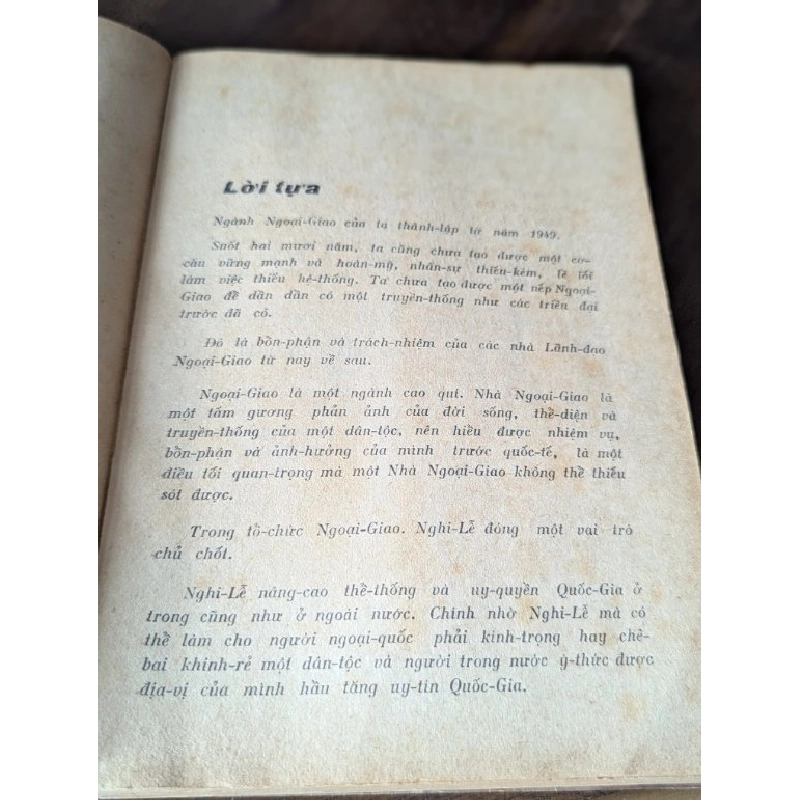 Lời tựa
Ngành Ngoại-Giao của ta thành-lập từ năm 1949.
Suốt hai mươi năm, ta cũng chưa tạo được một cơ-
cấu vững mạnh và hoàn-mỹ, nhân-sự thiếu-kém, lề lối
làm việc thiếu hệ-thống. Ta chưa tạo được một nếp Ngoại-
Giao để dần dần có một truyền-thống như các triều đại
trước đã có.
Đó là bổn-phận và trách-nhiệm của các nhà Lãnh-đạo
Ngoại-Giao từ nay về sau.
Ngoại-Giao là một ngành cao quí. Nhà Ngoại-Giao là
một tấm gương phản ảnh của đời sống, thể-diện và
truyền-thống của một dân-tộc, nên hiểu được nhiệm vụ,
bổn-phận và ảnh-hưởng của mình trước quốc-tế, là một
điều tối quan-trọng mà một Nhà Ngoại-Giao không thể thiếu
sót được.
Trong tổ-chức Ngoại-Giao. Nghi-Lễ đóng một vai trò
chủ chốt.
Nghi-Lễ nâng-cao thể-thống và uy-quyền Quốc-Gia ở
trong cũng như ở ngoài nước. Chính nhờ Nghi-Lễ mà có
thể làm cho người ngoại-quốc phải kính-trọng hay chê-
bai khinh-rẻ một dân-tộc và người trong nước ý-thức được
địa-vị của mình hầu tăng uy-tín Quốc-Gia.